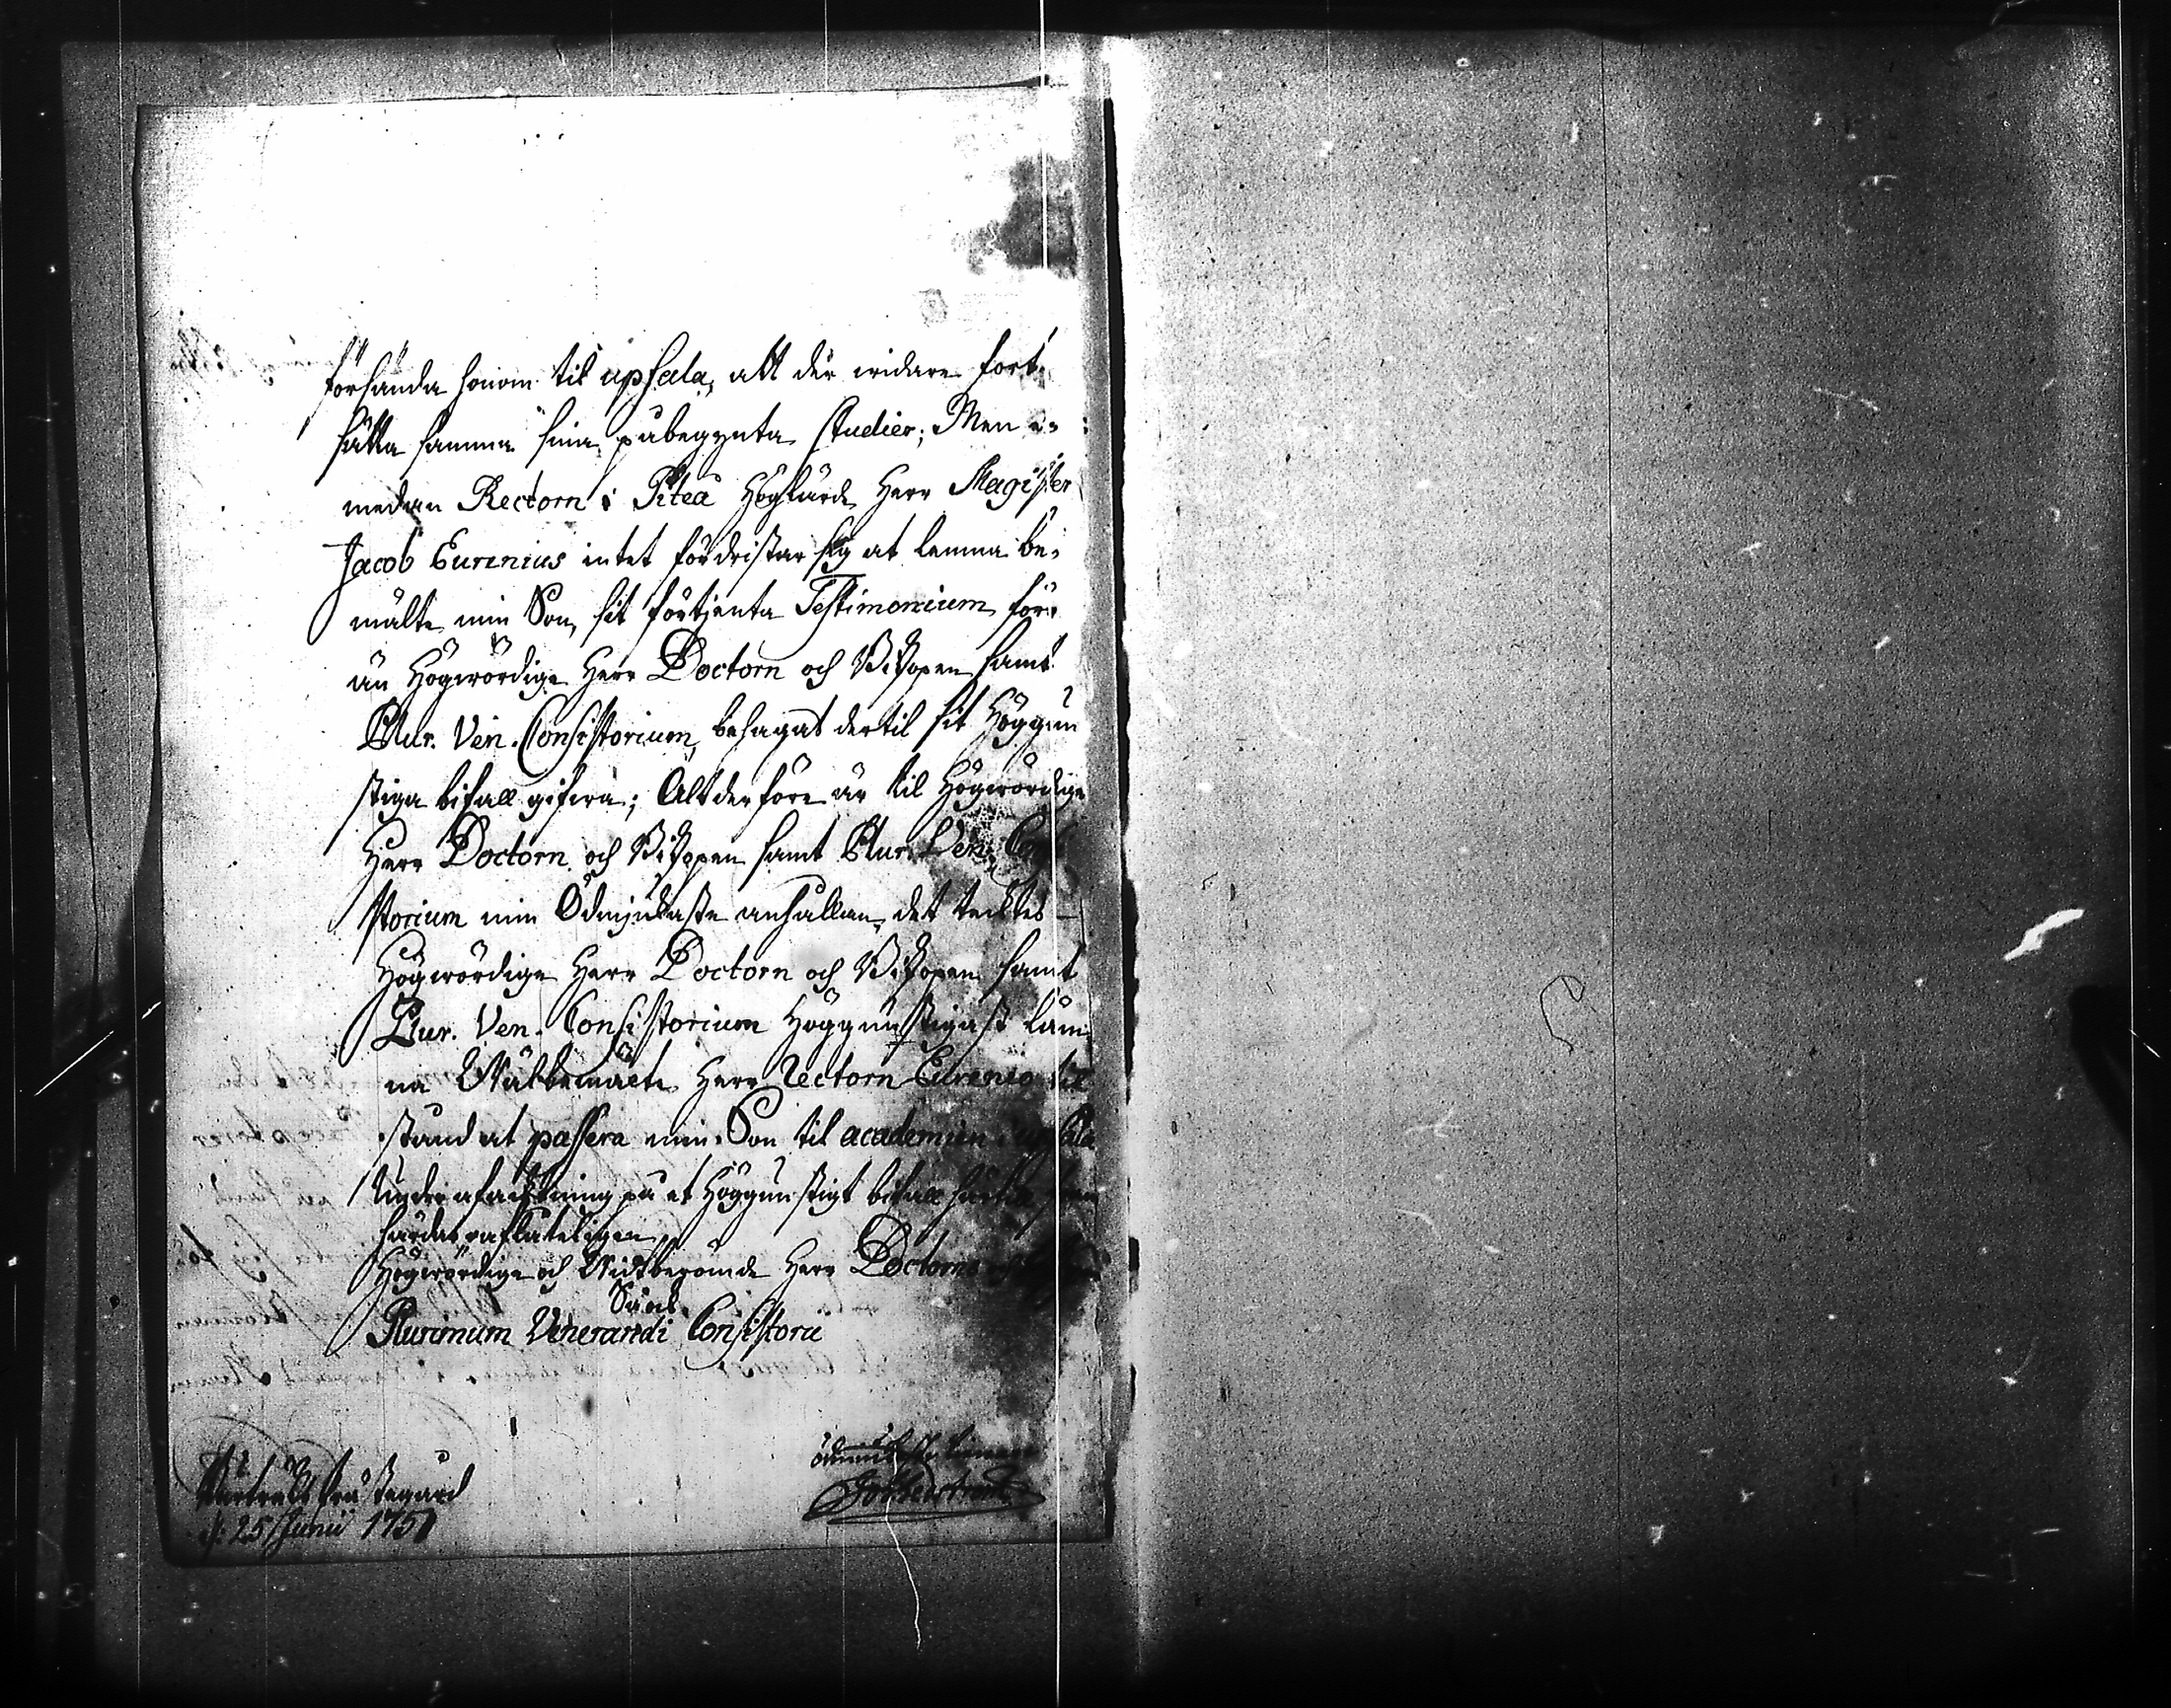 försända honom til upsala, att der widare fort-
sätta samma sina påbegynta studier; Men e-
medan Rectorn i Piteå Höglärde Herr Magister
Jacob Eurenius intet fördristar sig at lemna be-
mälte min Son, sit förtjenta Testimonium för-
än Högwördige Herr Doctorn och Biskopen samt
Plur. Ven. Consistorium, behagat dertil sit Höggun
stiga bifall gifwa; Altderföre är til Högwördige
Herr Doctorn och Biskopen samt Plur. Ven. Consi
storium min Ödmjukaste anhållan, det tecktes
Högwördige Herr Doctorn och Biskopen samt
Plur. Ven. Consistorium Höggunstigast läm-
na Wälbemälte Herr Rectorn Eurenio til
stånd at passera min Son til academien i upsala
Under afwacktning på et Höggunstigt bifall
härdar oaflåteligen
Högwördige och Widtberömde Herr Doctorns
Samt
Plurimum Venerandi Consistorii
ödmiukaste tienare
prästegård
d: 25 Junii 1751